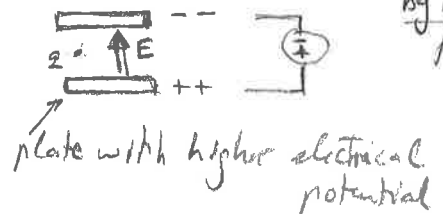 By
- -
2 E
++
plate with higher electrical
potential